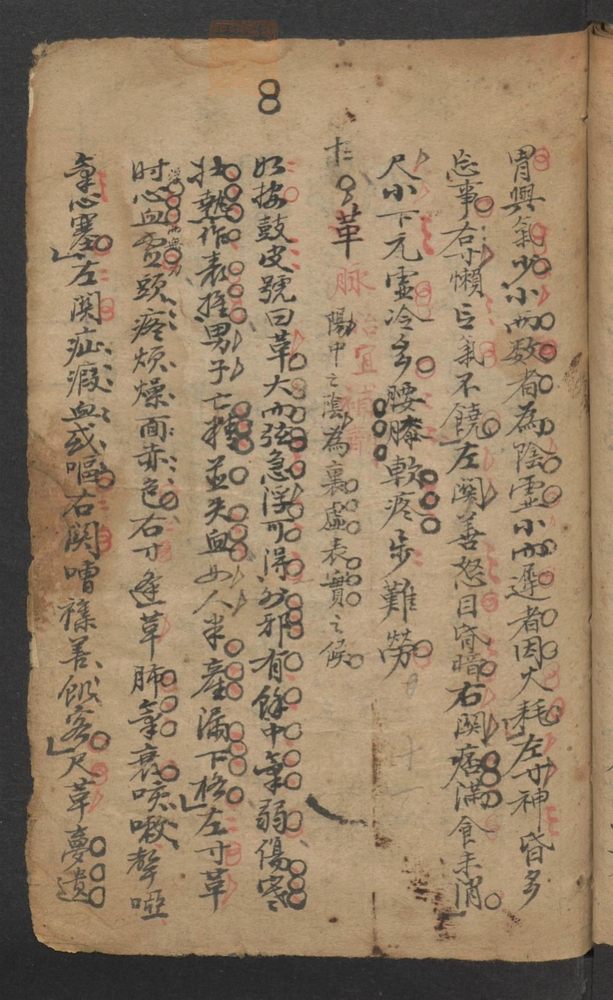 胃興氣少小而数者為陰虚小而遲者因火耗左寸神昏多
忘事右寸懶言氣不饒左関善怒目昏暗右関痞滿食未消
尺小下元虚冷字腰膝軟疼步難勞
十三 革脉 治宜補腎 陽中之陰為裏虚表實之候
如按鼓皮號曰革大而弦急浮可得外邪有餘中氣弱傷寒
壮熱作表推男子亡精並失血女人半産漏下格左寸革
時心血虚頭疼煩燥面赤色右寸逢革肺氣衰咳嗽聲啞
氣心塞左関疝瘕血或嘔右関嘈雜善飢客尺革夢遺
8